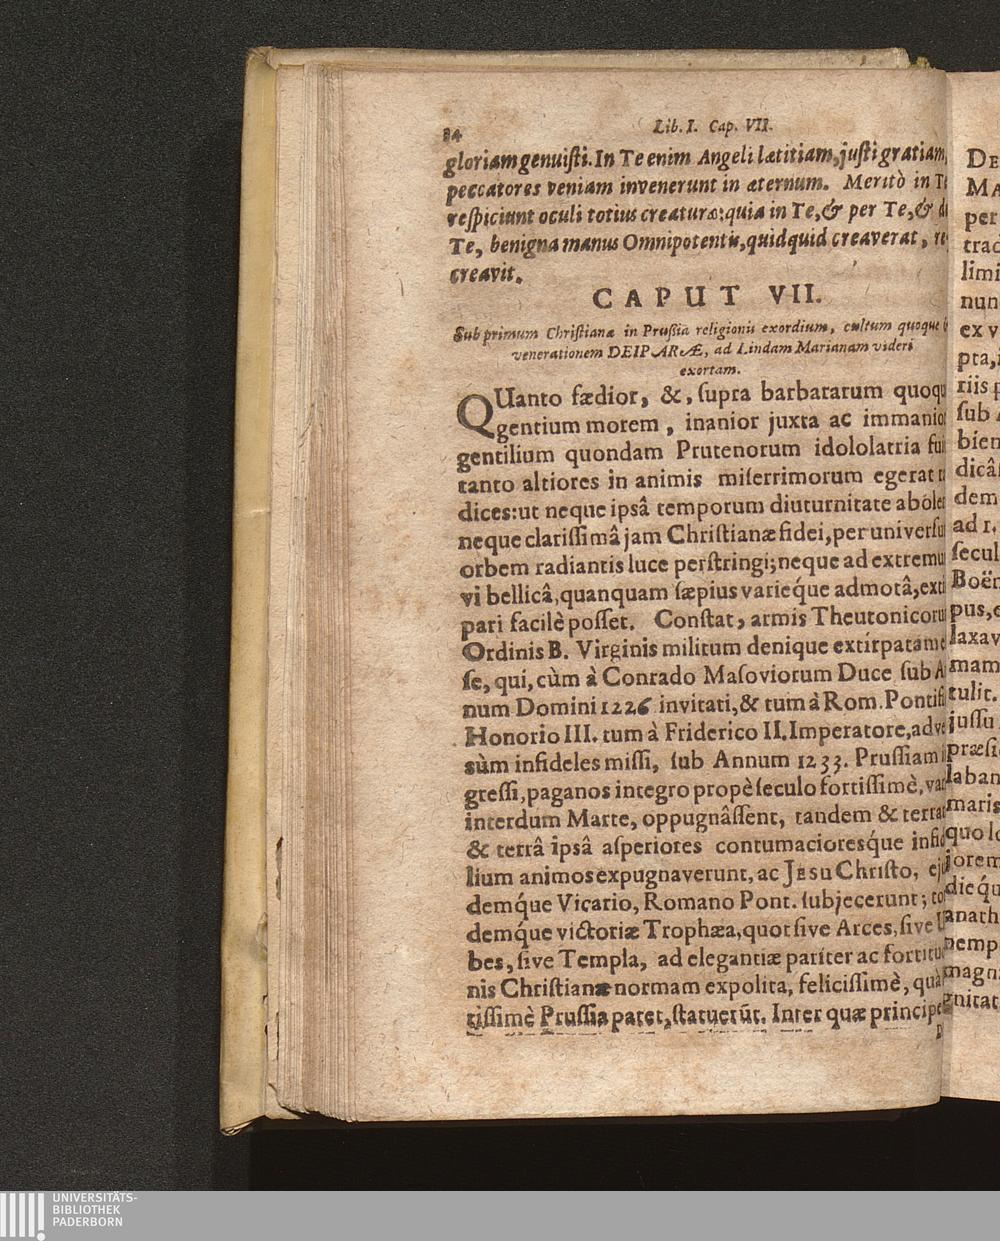 84 Lib. I. Cap. VII.
gloriam genuisti. In Te enim Angeli lætitiam, justi gratiam,
peccatores veniam invenerunt in æternum. Meritò in T
respiciunt oculi totius creaturæ: quia in Te, & per Te, & d
Te, benigna manus Omnipotentis, quidquid creaverat, re
creavit.
CAPUT VII.
Sub primum Christianæ in Prussia religionis exordium, cultum quoque
venerationem DEIPARÆ, ad Lindam Marianam videri
exortam.
QUanto fædior, &, supra barbararum quoqu
gentium morem, inanior juxta ac immanior
gentilium quondam Prutenorum idololatria fui
tanto altiores in animis miserrimorum egerat r
dices: ut neque ipsâ temporum diuturnitate abóler
neque clarissimâ jam Christianæ fidei, per universu
orbem radiantis luce perstringi; neque ad extremu
vi bellicâ, quanquam sæpius varieq́ue admotâ, exti
pari facilè posset. Constat, armis Theutonicoru
Ordinis B. Virginis militum denique extirpatam e
se, qui, cùm à Conrado Masoviorum Duce sub A
num Domini 1226 invitati, & tum à Rom. Pontifi
Honorio III. tum à Friderico II. Imperatore, adve
sùm infideles missi, sub Annum 1233. Prussiam i
gressi, paganos integro propè seculo fortissimè, var
interdum Marte, oppugnâssent, tandem & terrar
& terrâ ipsâ asperiores contumacioresq́ue infid
lium animos expugnaverunt, ac Jesu Christo, eju
demq́ue Vicario, Romano Pont. subjecerunt; to
demq́ue victoriæ Trophæa, quot sive Arces, sive U
bes, sive Templa, ad elegantiæ pariter ac fortitud
nis Christianæ normam expolita, felicissimè, quà
tissimè Prussia patet, statuerũt. Inter quæ principe
P
DE
MA
per
trad
limi
nun
ex v
pta,
riis p
sub
bien
dicâ
dem
ad 1.
secul
Boën
pus, c
laxav
mam
tulit.
jussu
præsi
laban
maris
quo lo
jorem
die qu
anath
nemp
magn
gnitat
UNIVERSITÄTS-
BIBLIOTHEK
PADERBORN